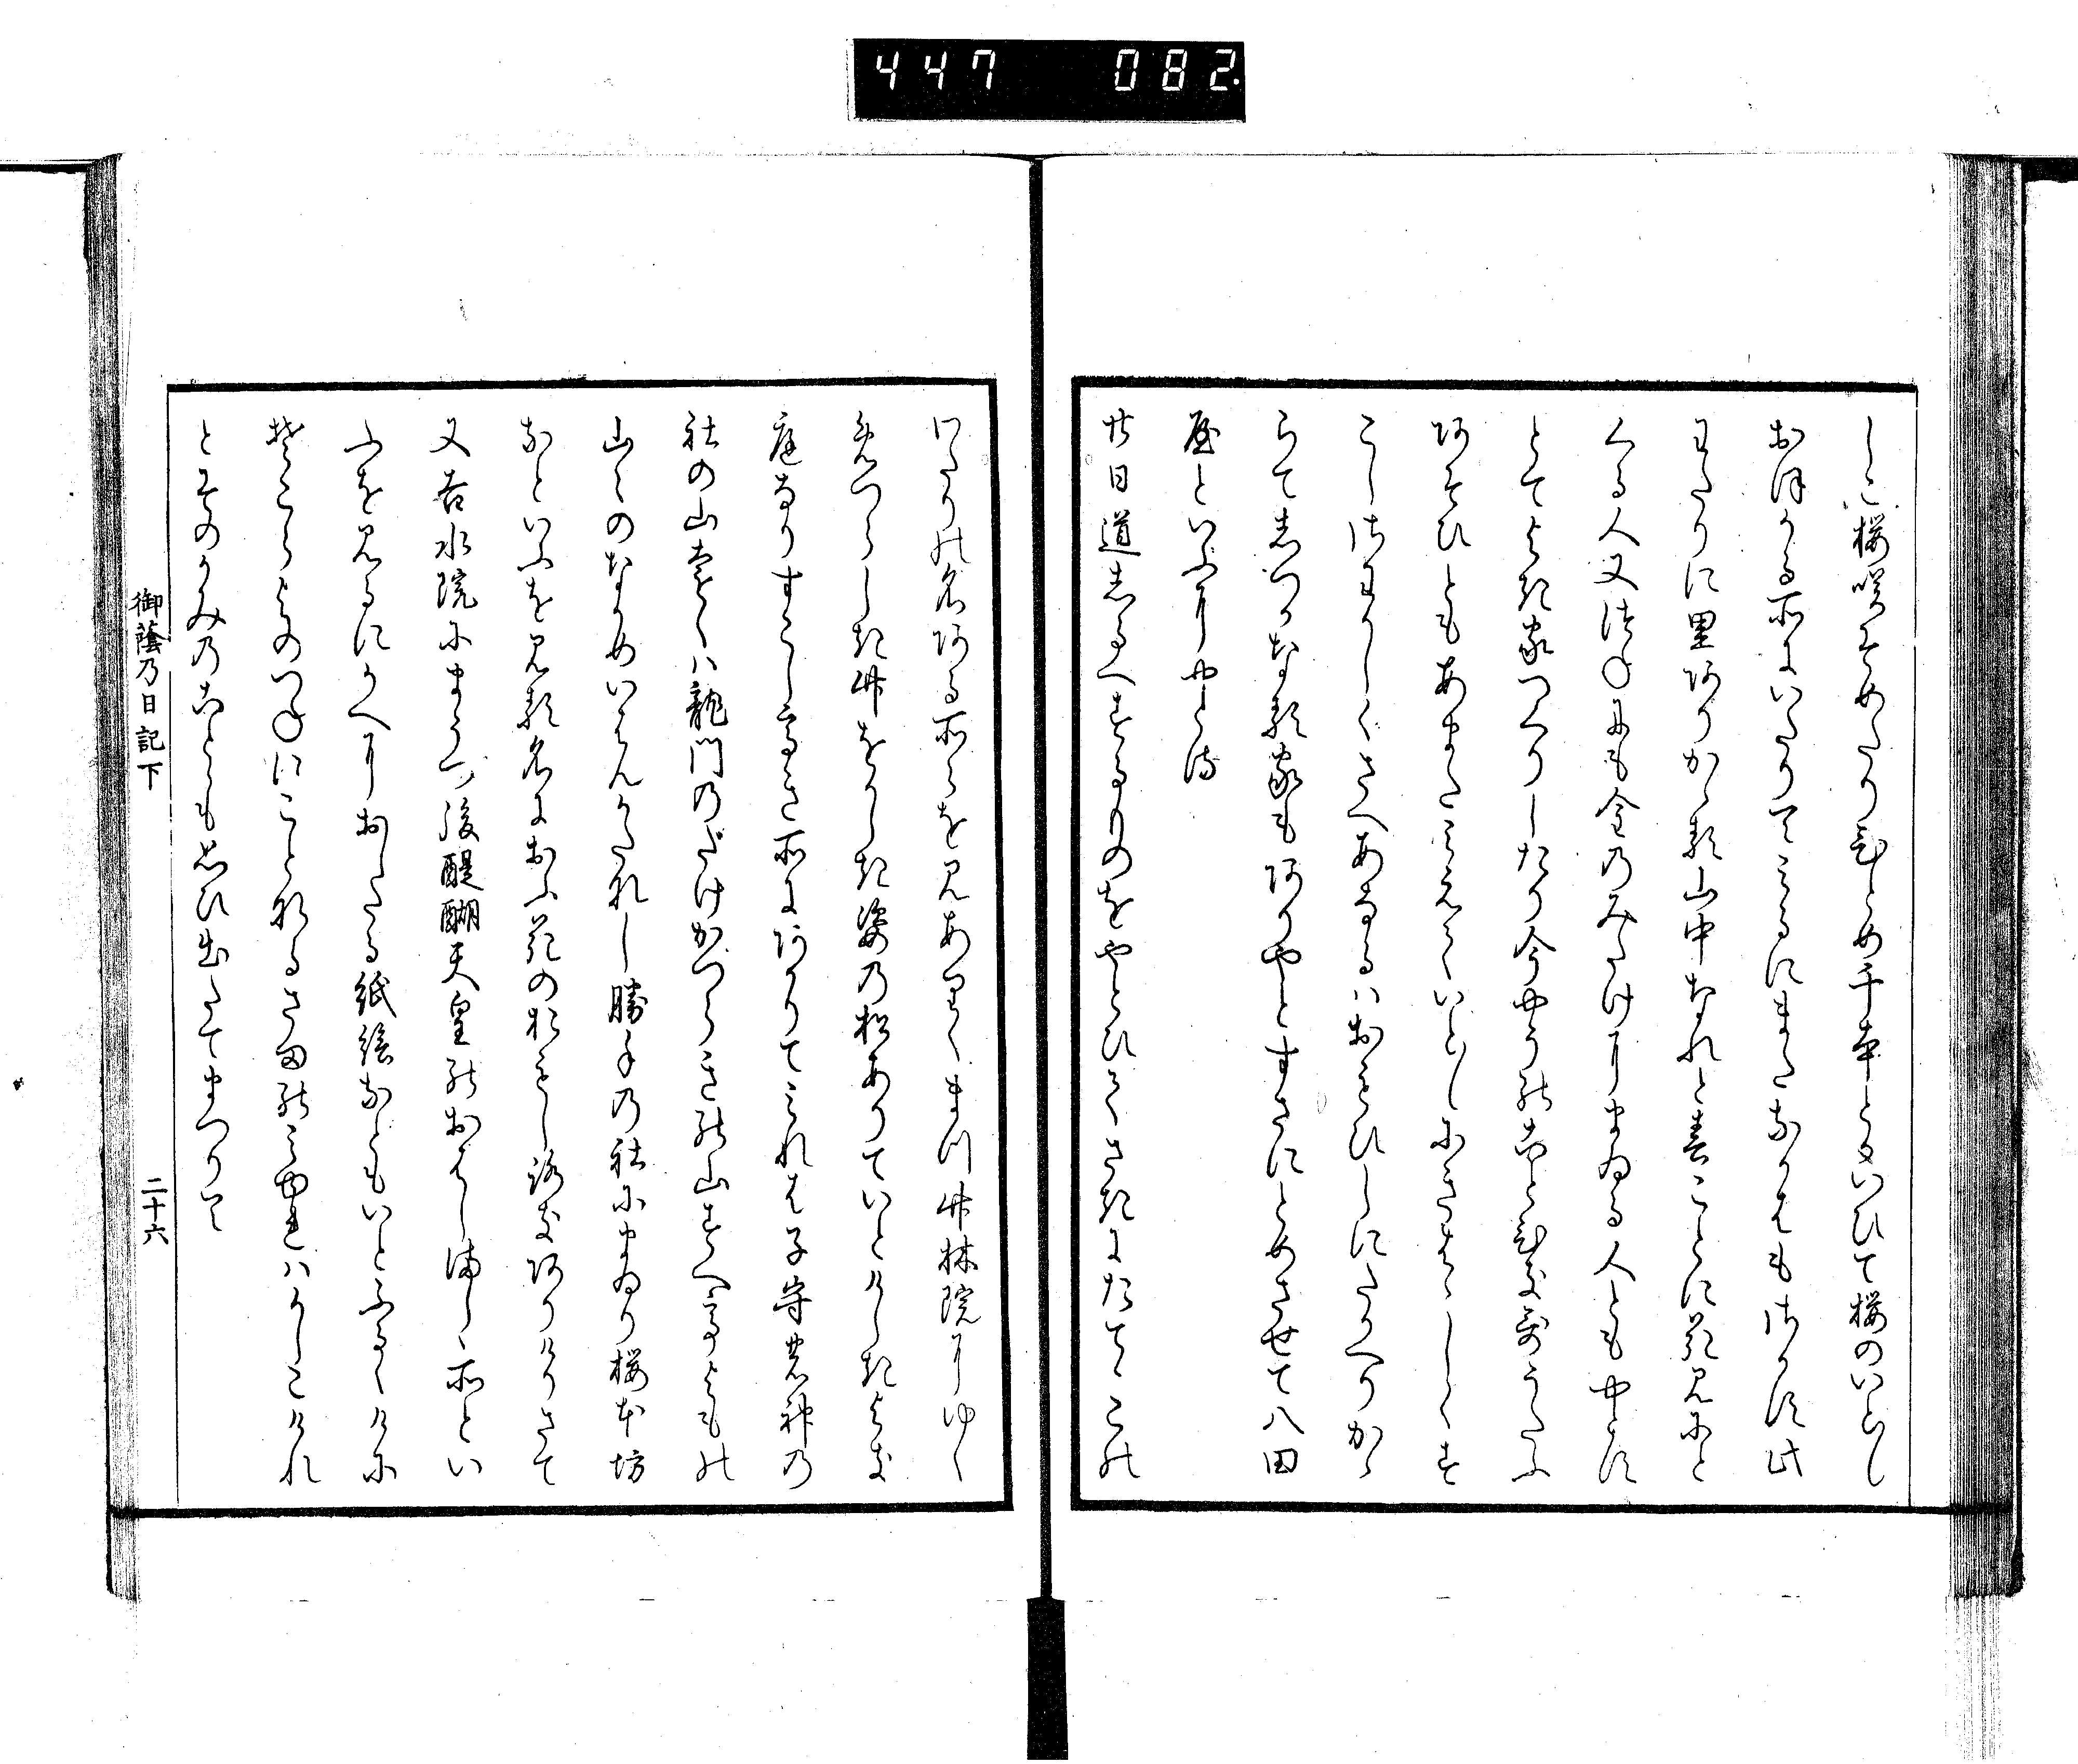 447 082
しこ桜咲そめたりひとめ千本とかいひて桜のいとし
おほかる所にいたりてみるにまたなかはもさかす此
わたりに里ありかゝる山中なれと春ことに花見にと
くる人又つねにも金のみたけにまゐる人ともやとす
とてよき家つくりしたり今やうのことひきうたふ
あそひともあまたみえていといしにきはゝしくす
こしさわかしくさへあなるはおもひしにたかへりかゝ
らてしつかなる家もありやとすさにとめさせて八田
屋といふにやとる
廿日道しるへするものをやとひてさきにたてゝこの
わたりの名ある所々を見ありくまつ竹林院にゆく
めつらしき竹をかしき姿の松ありていとけしきよき
庭なりすこし高き所にありてみれは子守の神の
社の山遠くは龍門のたけかつらきの山すへて高とも の
山々のなかめいはんかたなし勝手の社にまゐり桜本坊
なといふを見る名におふ花のおもしろきありけりさて
又吉水院にまうつ後醍醐天皇のおはしましゝ所とい
ふを見るにかへにおしたる紙絵なともいとふるくけに
そこらよのつねにことなるさまのみやれはかしこけれ
とそのかみのことも思ひ出たてまつりて
御蔭乃日記下 二十六